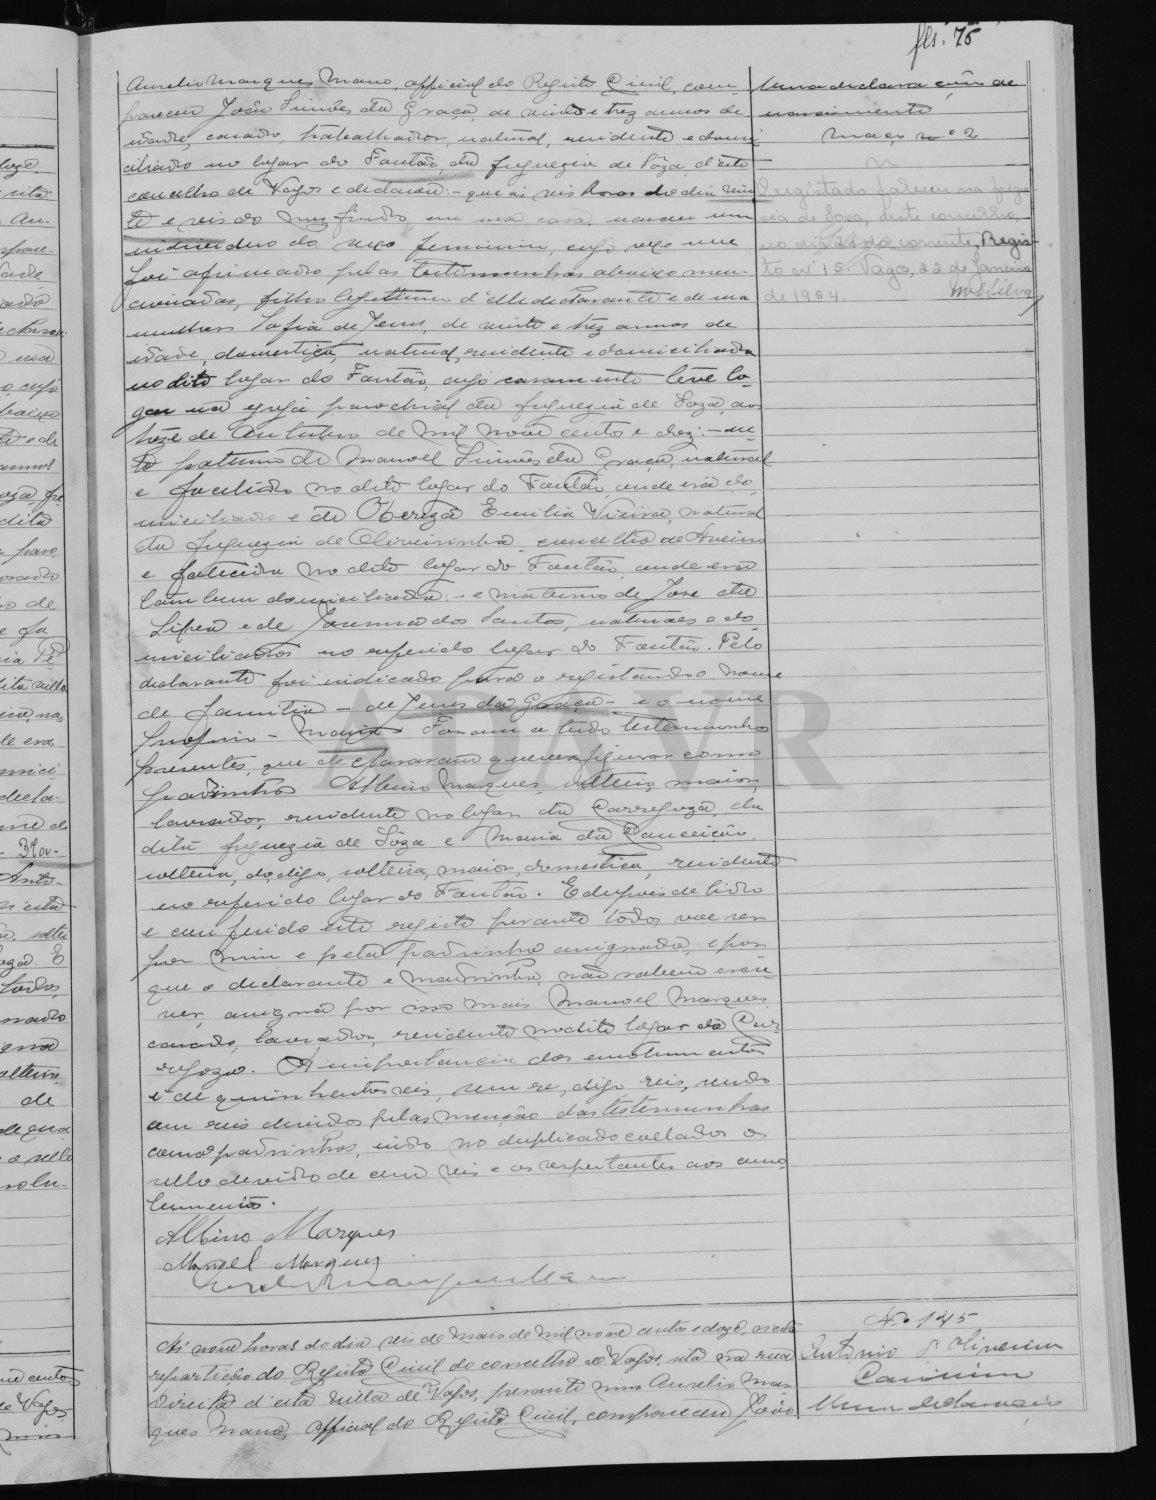 fls. 75
Aurelio Marques Mano, official do Registo Civil, com-
pareceu João Simões da Graça, de vinte e trez annos de
idade, casado, trabalhador, natural, residente e domi-
ciliado no logar do Fontão, da freguezia de Sôza, d'este
concelho de Vagos e declarou: - que ás seis horas do dia vin-
te e seis do mez findo, em sua casa, nasceu um
individuo do sexo feminino, cujo sexo me
foi afirmado pelas testemunhas abaixo men-
cionadas, filho legitimo d'elle declarante e de sua
mulher Sofia de Jesus, de vinte e trez annos de
idade, domestica, natural, residente e domiciliada
no dito logar do Fontão, cujo casamento teve lo-
gar na egreja parochial da freguezia de Soza, aos
treze de Outubro de mil nove centos e dez: - ne-
to paterno de Manoel Simões da Graça, natural
e falecido no dito logar do Fontão, onde era do-
miciliado e de Thereza Emilia Vieira, natural
da freguezia de Oliveirinha, concelho de Aveiro
e falecida no dito logar do Fontão, onde era
tambem domiciliada: - e materno de José da
Silva e de Joanna dos Santos, naturaes e do-
miciliados no referido logar do Fontão. Pelo
declarante foi indicado para o registando o nome
de familia - de Jesus da Graça - e o nome
proprio - Maria. Foram a tudo testemunhas
presentes, que declararam querer figurar como
padrinhos Albino Marques, solteiro, maior,
lavrador, residente no logar da Carregoza, da
dita freguezia de Sôza e Maria da Conceição,
solteira, dodigo, solteira, maior, domestica, residente
no referido logar do Fontão. E depois de lido
e conferido este registo perante todos, vae ser
por mim e pelo padrinho assignado, e por-
que o declarante e madrinha, não sabem escre-
ver, assigna por isso mais Manoel Marques
casado, lavrador, residente no dito logar da Car-
regoza. A importancia dos emolumentos
é de quinhentos reis, sem re, digo reis, sendo
cem reis devidos pelas menção das testemunhas
como padrinhos, indo no duplicado collados o
sello devido de cem reis e os respeitantes aos emo-
lumentos.
Albino Marques
Manoel Marques
Aurelio Marques Mano
Uma declaração de
nascimento
Maço nº 2
O registado faleceu na fregue-
sia de Sosa, deste concelho,
no dia 21 do corrente. Regis-
to nº 15. Vagos, 22 de Janeiro
de 1954.
Às nove horas do dia seis de Maio de mil nove centos e doze, nesta
repartição do Registo Civil do concelho de Vagos, sita na rua
Direita d'esta Villa de Vagos, perante mim Aurelio Mar-
ques Mano, official do Registo Civil, compareceu João
Nº 145
Antonio d'Oliveira
Uma declaração